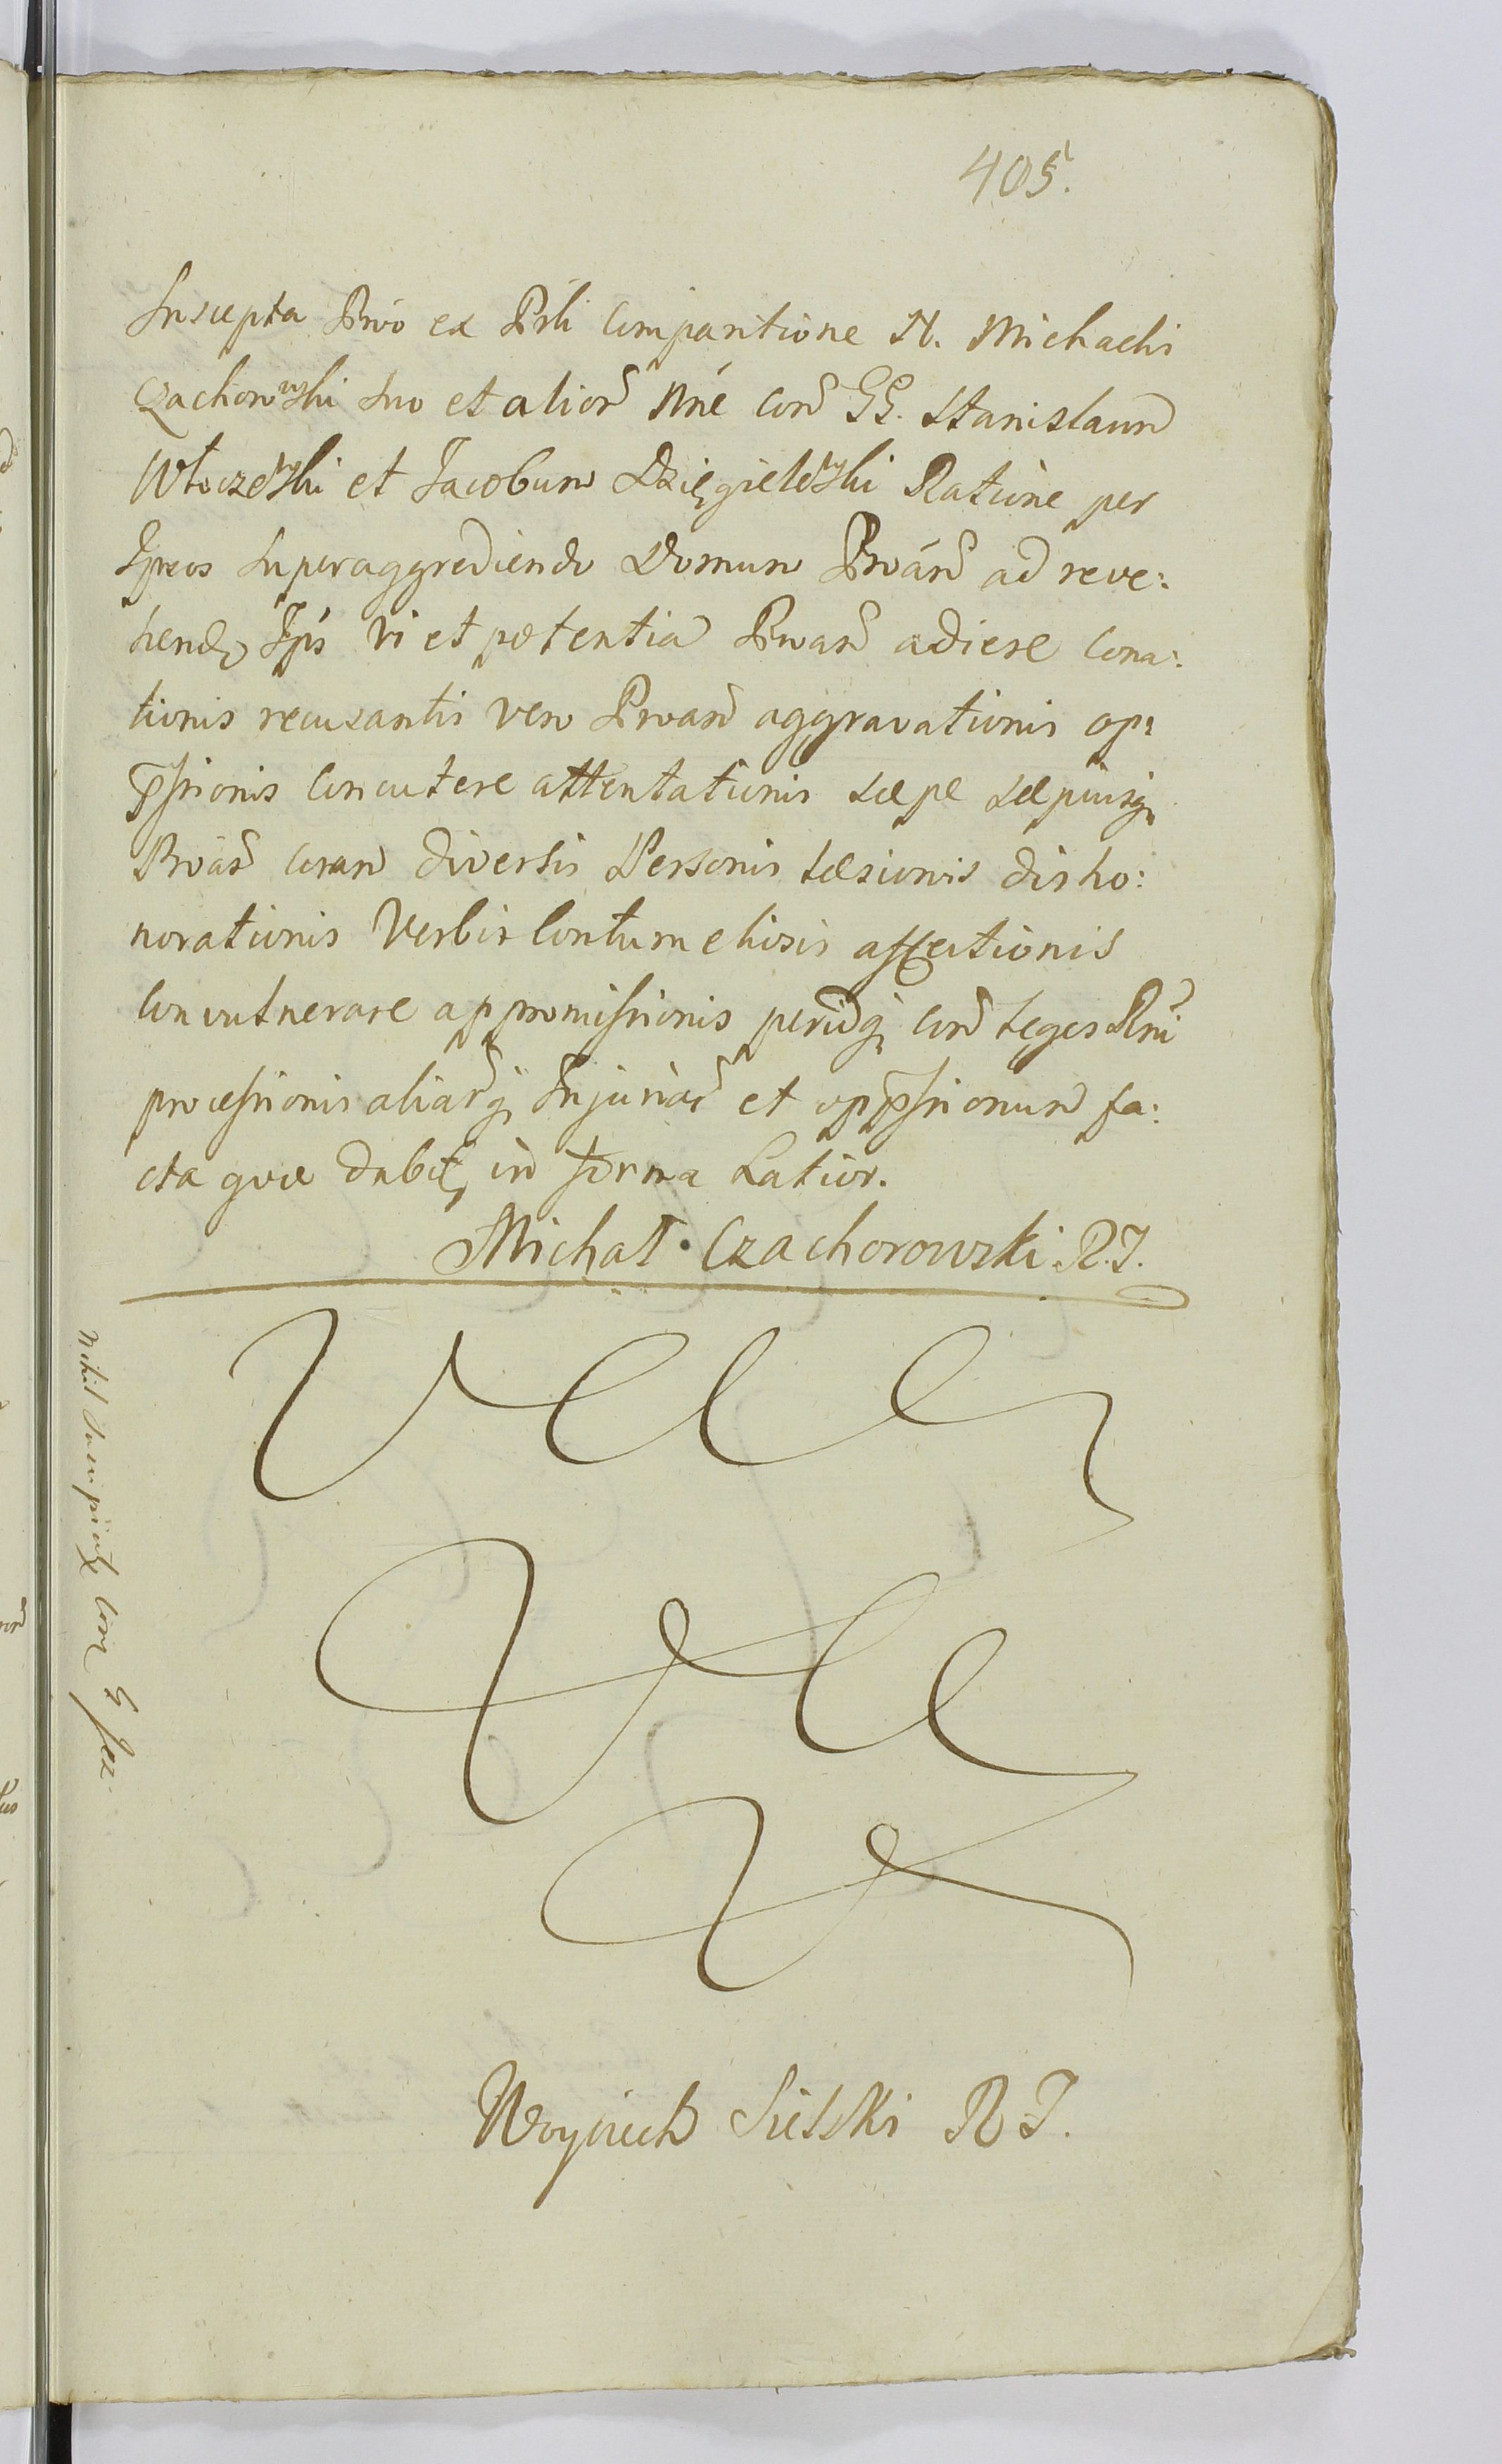 405.
Inscripta Prô ex Prli Comparitione N. Michaelis
Czachorowski suo et alior͂ Nné con͂ GG. Stanislaum
Włoczewski et Jacobum Dzięgielewski Ratione per
Ipsos superaggrediendo Domum ad reve:
hend Ips vi et potentia adiere Cona:
tionis recusantis vero aggravationis op:
p͂ssionis Concutere attentationis sæpe sæpiusq
Coram diversis Personis læsionis disho:
norationis Verbis Contumeliosis affectionis
Convulnerare appromissionis con͂ leges Rni
processionis aliar͂q Injuriar͂ et opp͂ssionum fa:
cta quæ dabit, in forma Latior.
Michał Czachorowski R.J.
Nihil
Woyciech Sielski RJ.